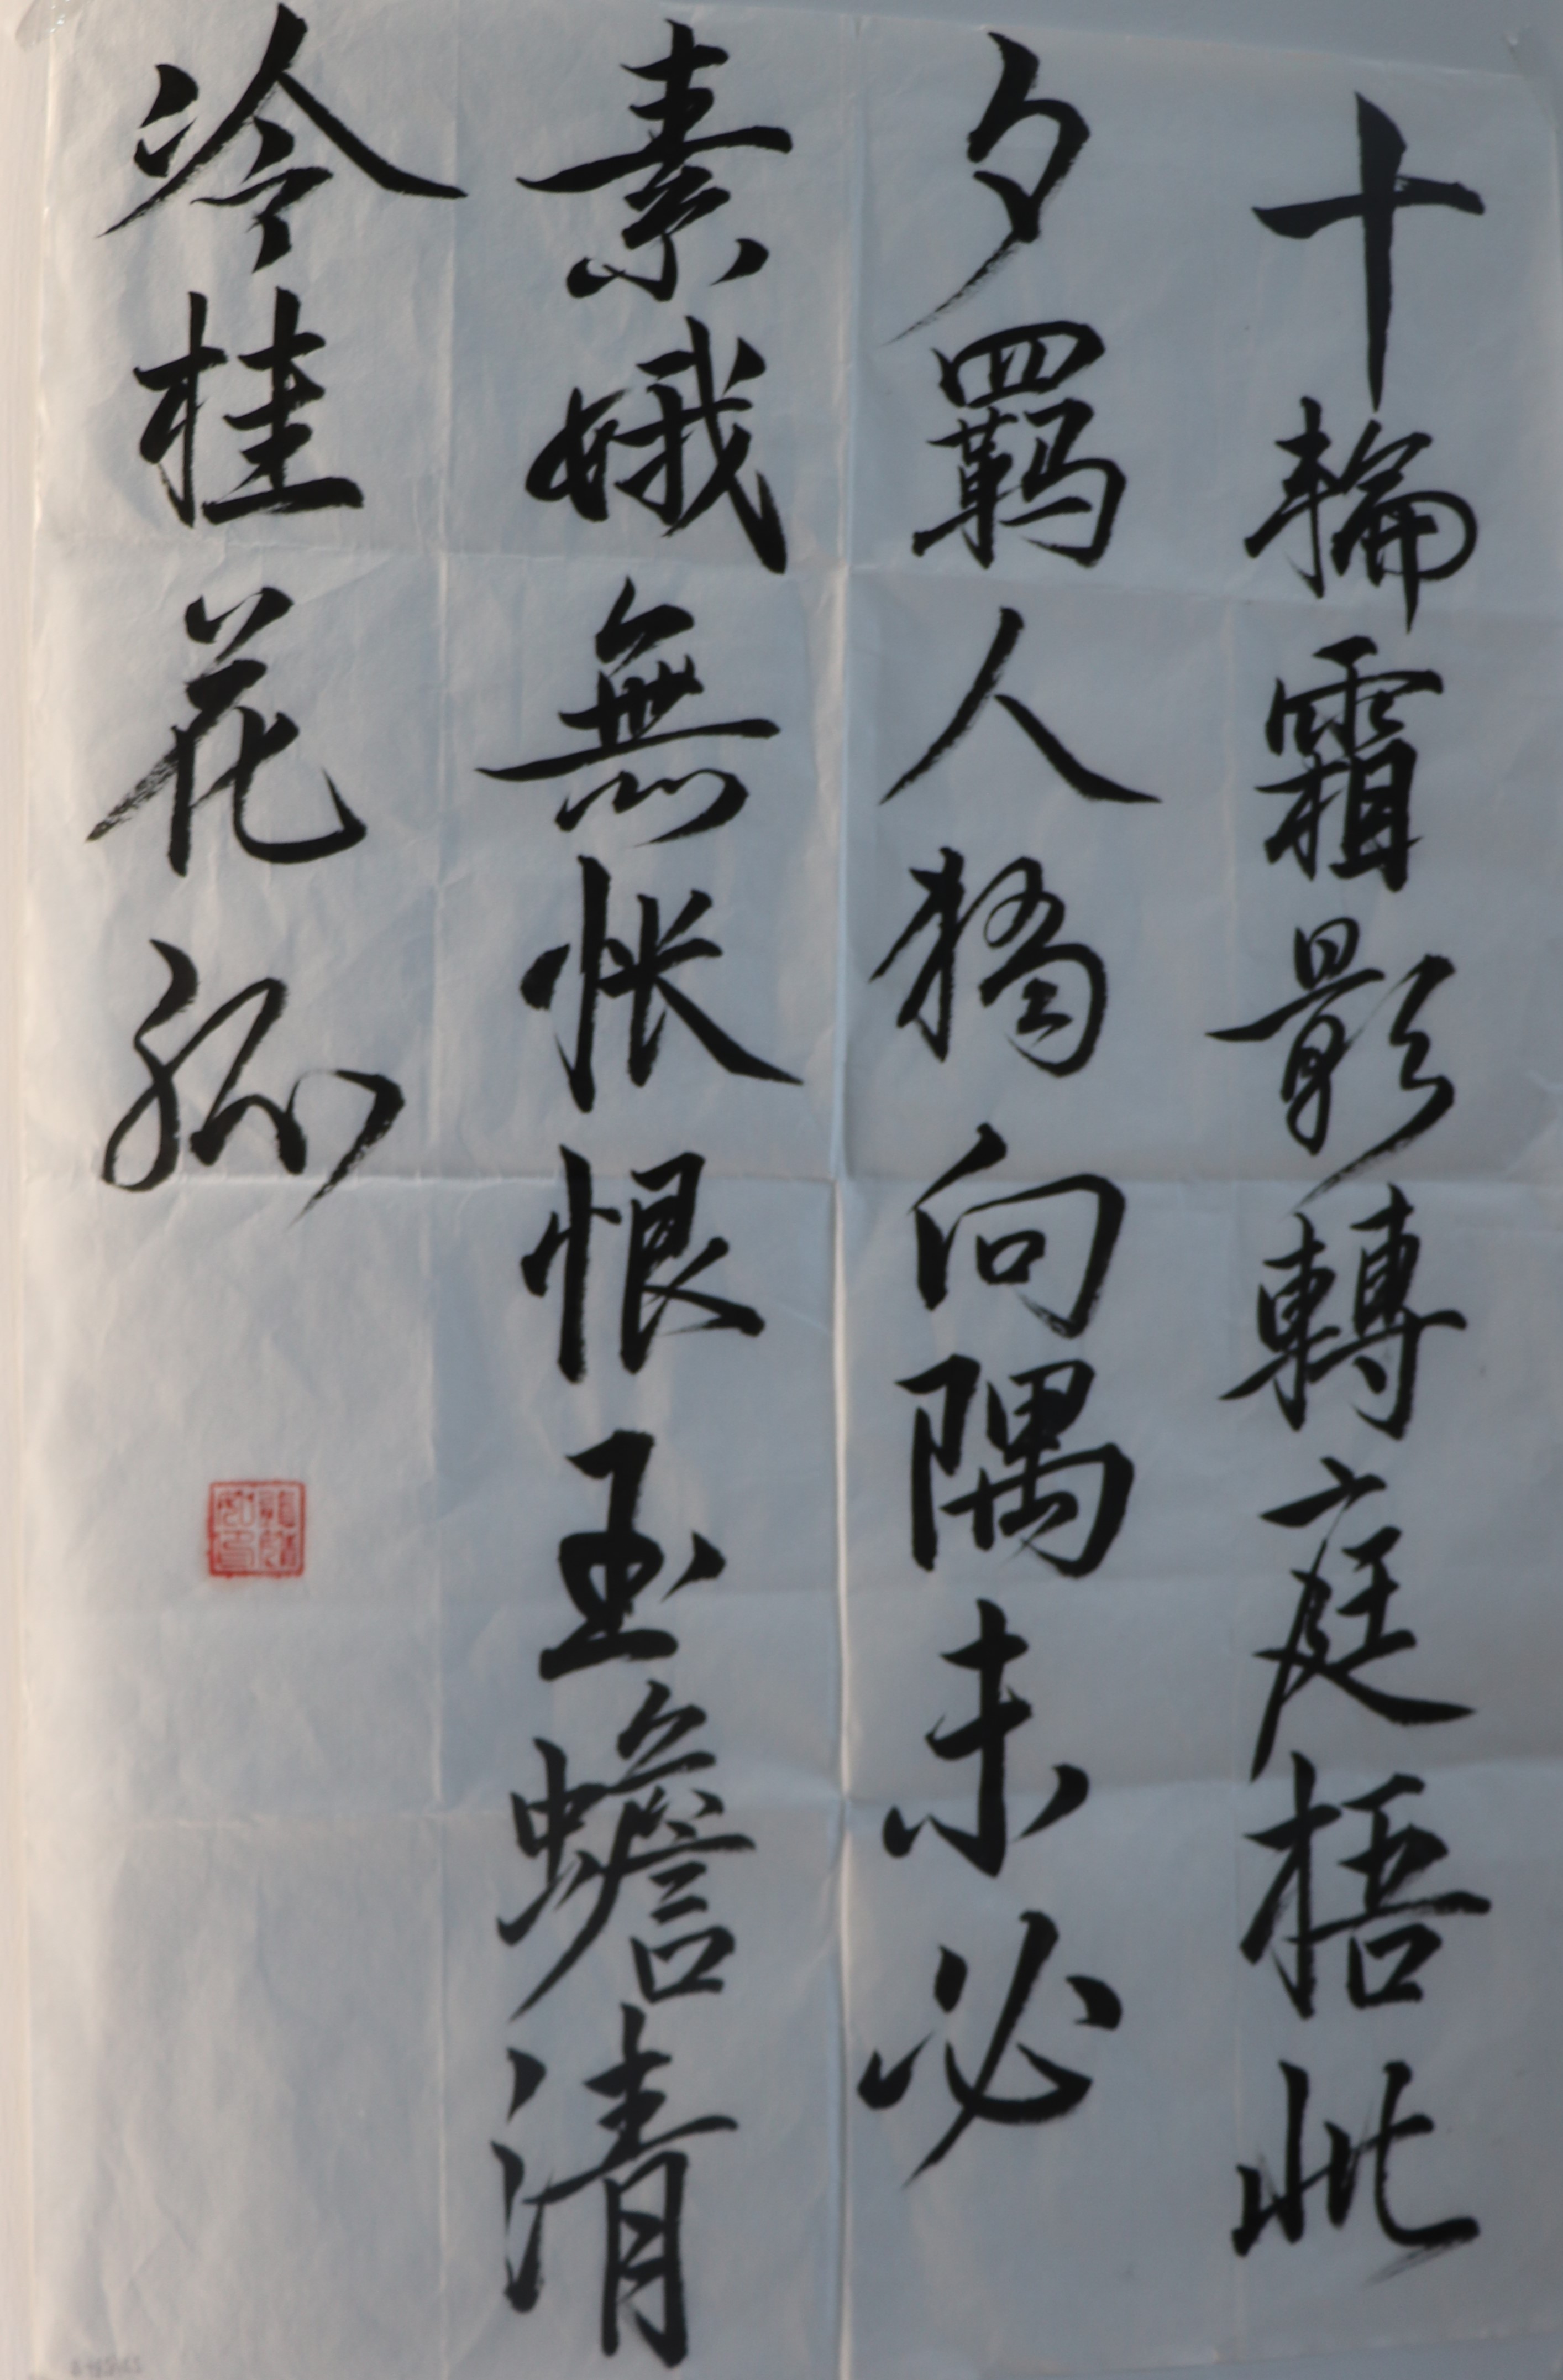 十輪霜影轉庭梧此
夕羇人獨向隅未必
素娥無悵恨玉蟾清
冷桂花孤